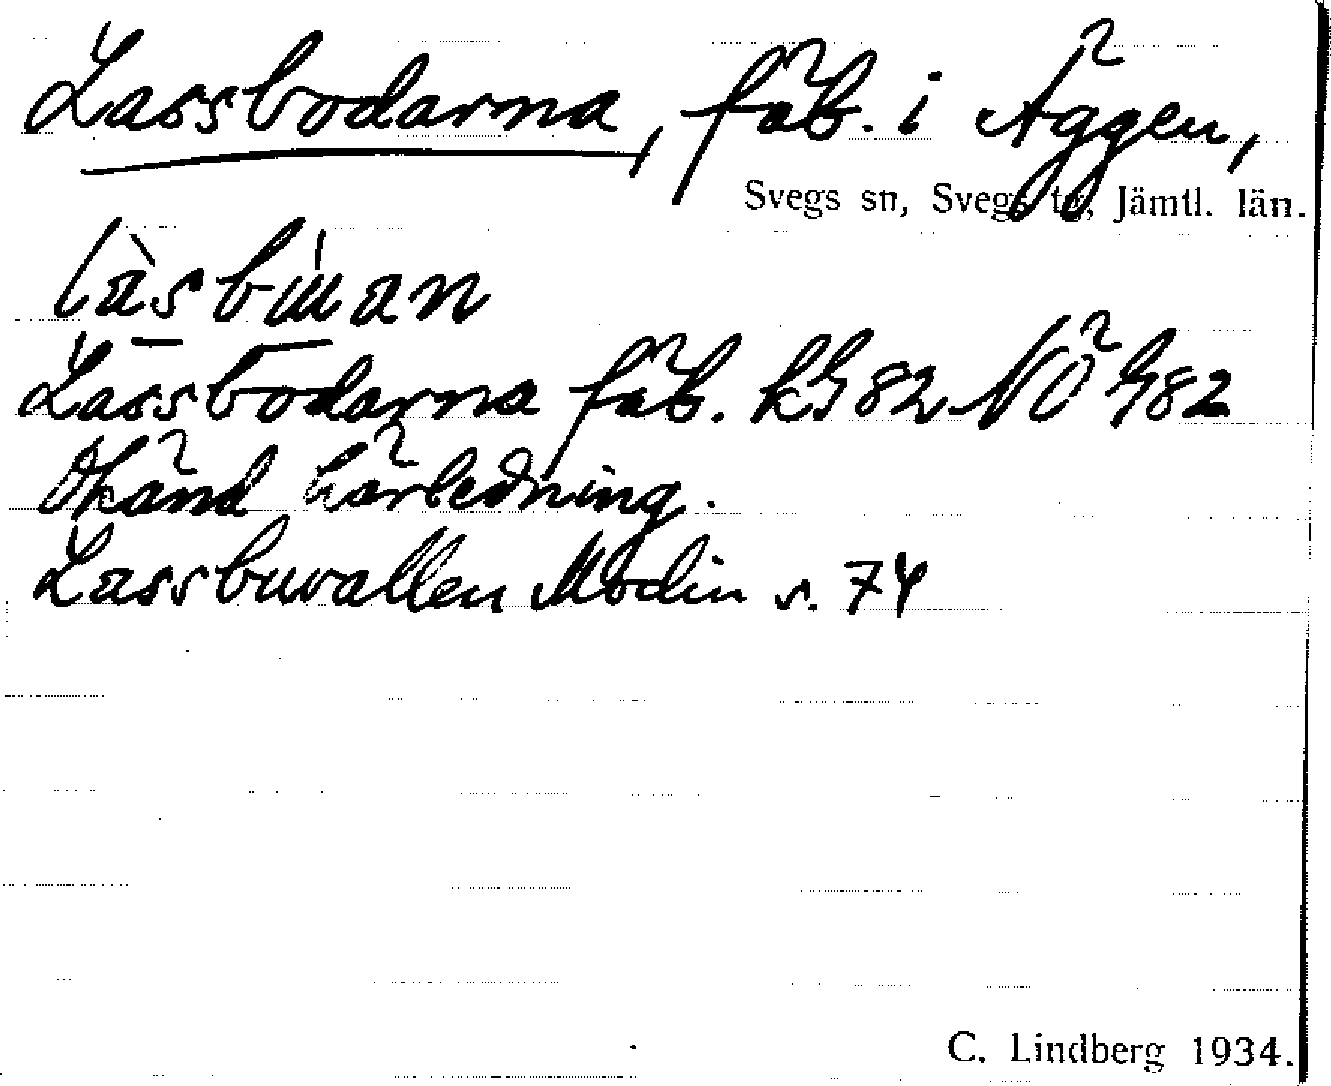 Lassbodarna, fäb. i Äggen,
Svegs sn, Svegs tg, Jämtl. län.
làsbúan
Lassbodarna fäb. kG82 NÖ G82
Okänd härledning.
Lassbuvallen Modin s. 74
C. Lindberg 1934.